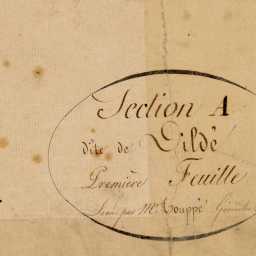 Section A
dite de Dildé
Première Feuille
Levée par Mr. Houppé Géomètre